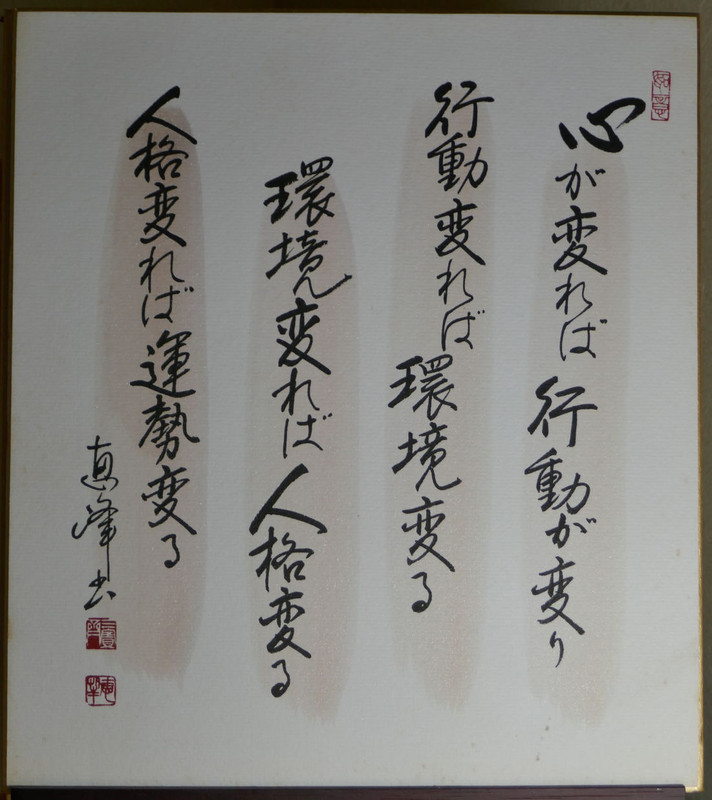 心が変れば行動が変り
行動変れば環境変る
環境変れば人格変る
人格変れば運勢変る